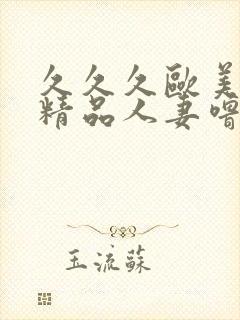 久久久歐美
精品人妻噜
玉流蘇